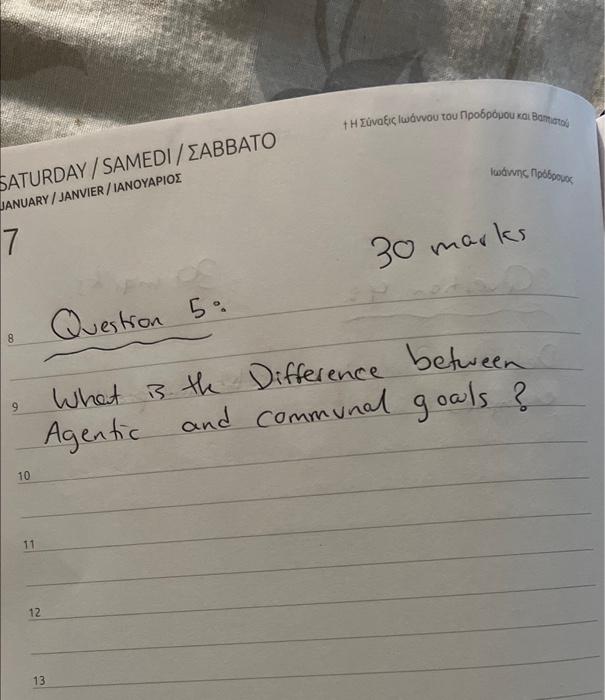 † Η Σύναξις Ιωάννου του Προδρόμου και Βαπτιστού
SATURDAY / SAMEDI / ΣΑΒΒΑΤΟ
JANUARY / JANVIER / ΙΑΝΟΥΑΡΙΟΣ
Ιωάννης, Πρόδρομος
7
30 marks
8 Question 5:
9 What is the Difference between
Agentic and communal goals ?
10
11
12
13